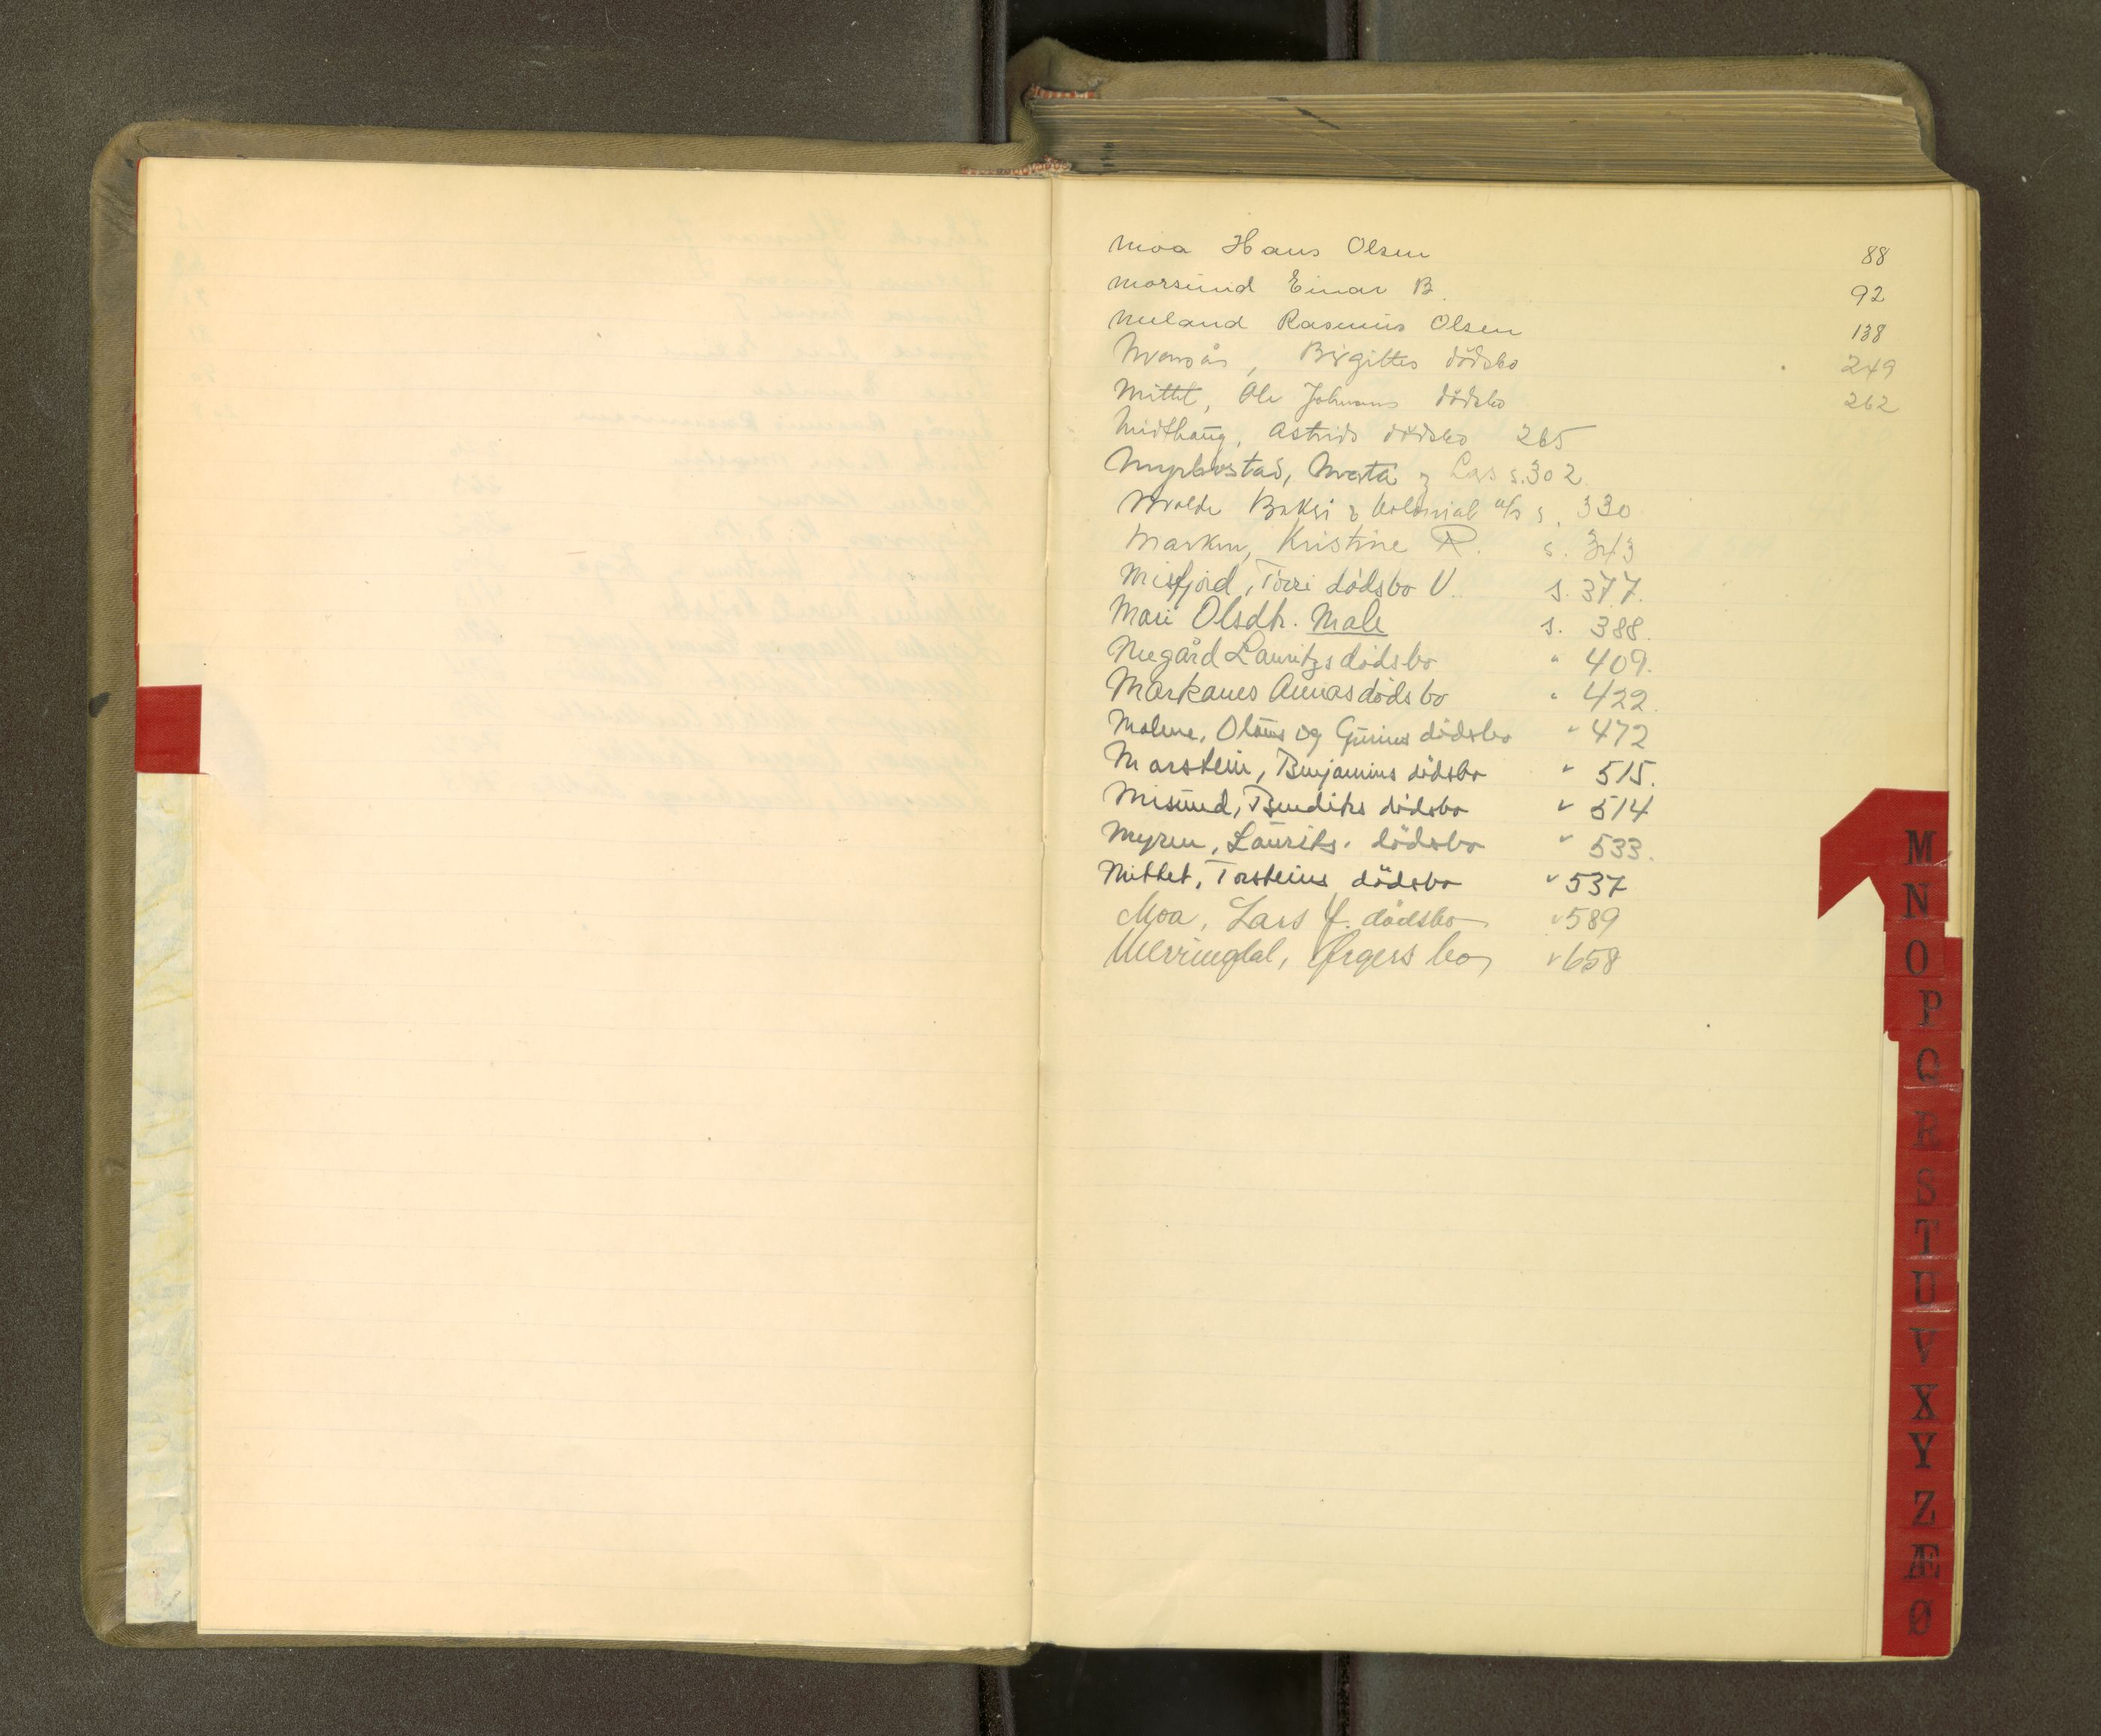 Moa Hans Olsen 88
Morsund Einar B. 92
Meland Rasmus Olsen 138
Birgittes dödsbo 249
Mittet, Ole Johnans dödsbo 262
Midthaug, Astrids dödsbo 265
Myrbostad, Marta og Lars s. 302
Molde Bakeri og Kolonial A/S s. 330
Marken, Kristine R. s. 343
Misfjord, Torri dødsbo V. s. 377.
Mari Olsdtr. Male s. 388.
Megård Lauritzs dødsbo " 409.
Markanes Annas dødsbo " 422.
Malene, Olaus og Gurines dødsbo " 472
Marstein, Benjamins dødsbo " 515.
Misund, Bendiks dødsbo " 514
Myren, Laurits. dödsbo " 533.
Mittet, Torsteins dödsbo " 537
Moa, Lars dødsbo " 589
Merringdal, bo, " 658
M
N
O
P
Q
R
S
T
U
V
X
Y
Z
Æ
Ø